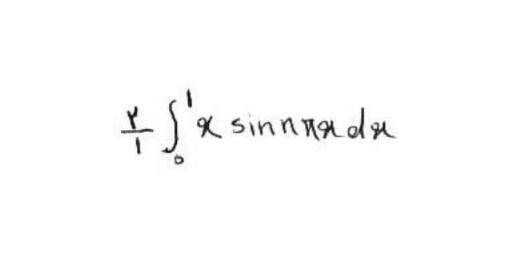 ۲/۱ ∫₀¹ x sin nπx dx